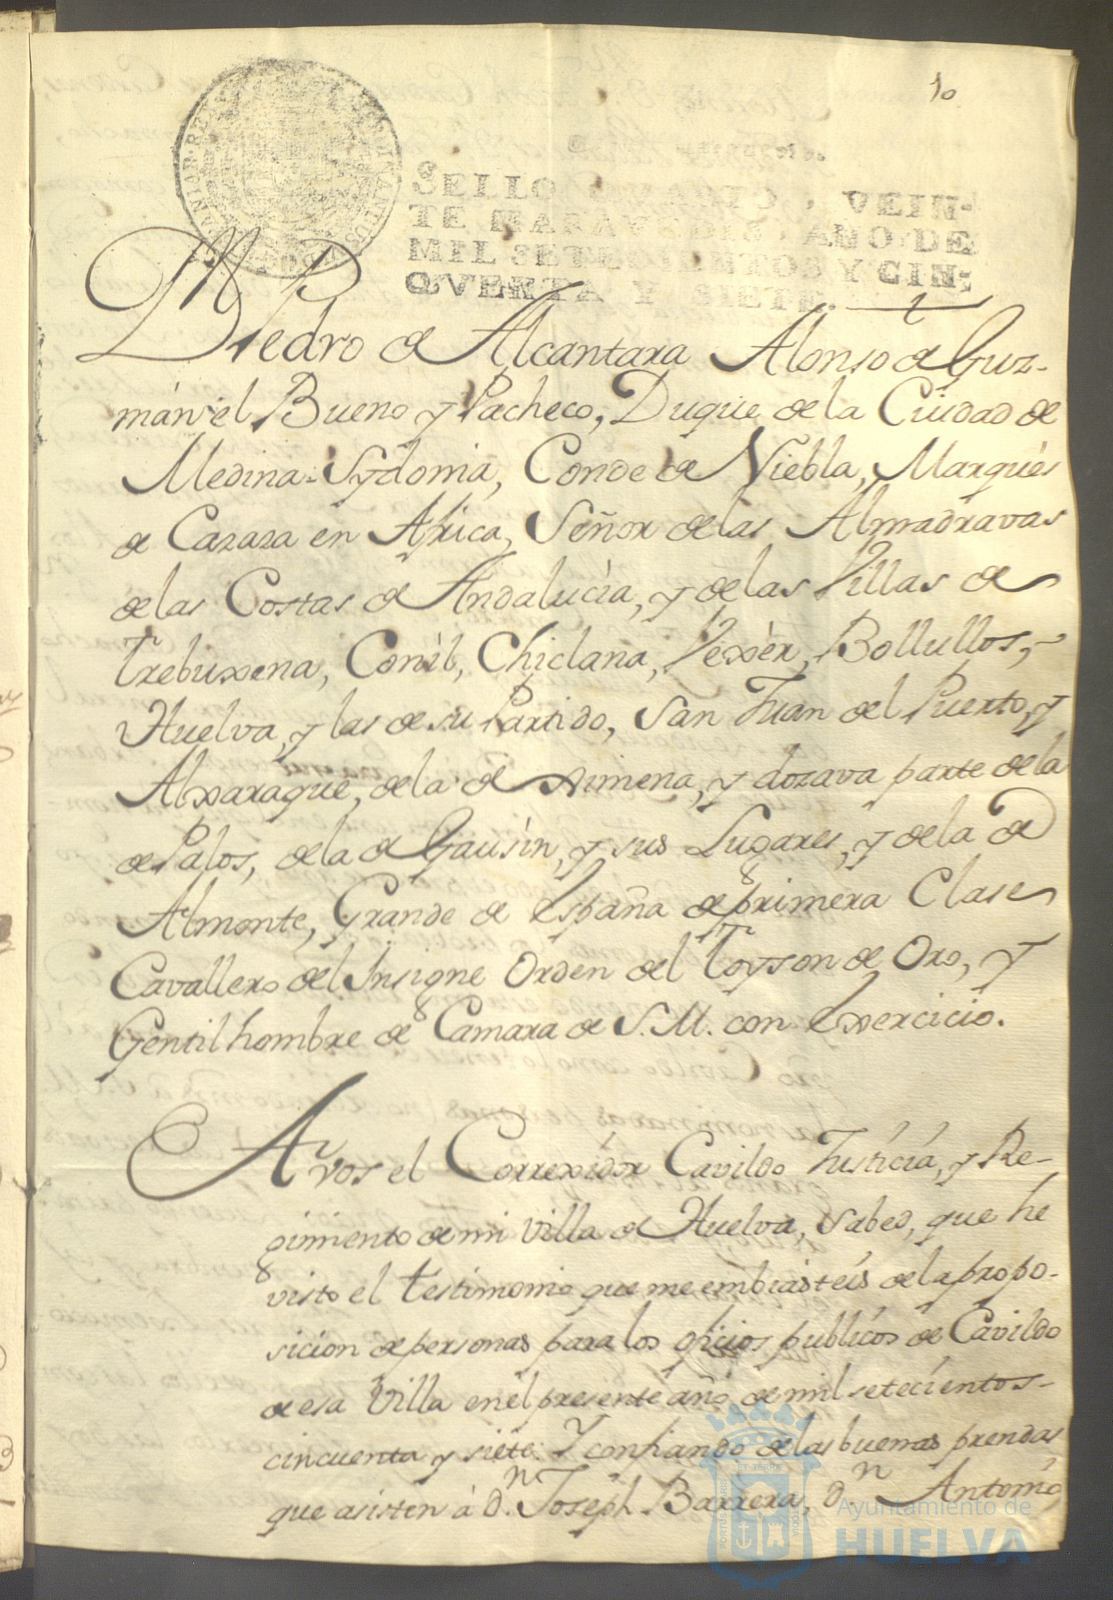 10
SELLO QVARTO, VEIN-
TE MARAVEDIS, AÑO DE
MIL SETECIENTOS Y CIN-
QVENTA Y SIETE.
Dn Pedro de Alcantara Alonso de Guz-
mán el Bueno y Pacheco, Duque de la Ciudad de
Medina-Sydonia, Conde de Niebla, Marqués
de Cazaza en Africa, Señor de las Almadravas
de las Costas de Andalucía, y de las Villas de
Trebuxena, Conil, Chiclana, Vexèr, Bollullos,
Huelva, y las de su Partido, San Juan del Puerto, y
Alxaraque, de la de Ximena, y dozava parte de la
de Palos, de la de Gausìn, y sus Lugares, y de la de
Almonte, Grande de España de primera Clase
Cavallero del Insigne Orden del Toyson de Oro, y
Gentilhombre de Camara de S.M. con Exercicio.
A vos el Correxidor Cavildo Justicia, y Re-
gimiento de mi Villa de Huelva, Sabed, que he
visto el testimonio que me embiasteis de la propo-
sicion de personas para los oficios publicos de Cavildo
de esa Villa en el presente año de mil setecientos
cincuenta y siete: Y confiando de las buenas prendas
que asisten á Dn. Joseph Barrera, Dn Antonio
Ayuntamiento de
HUELVA